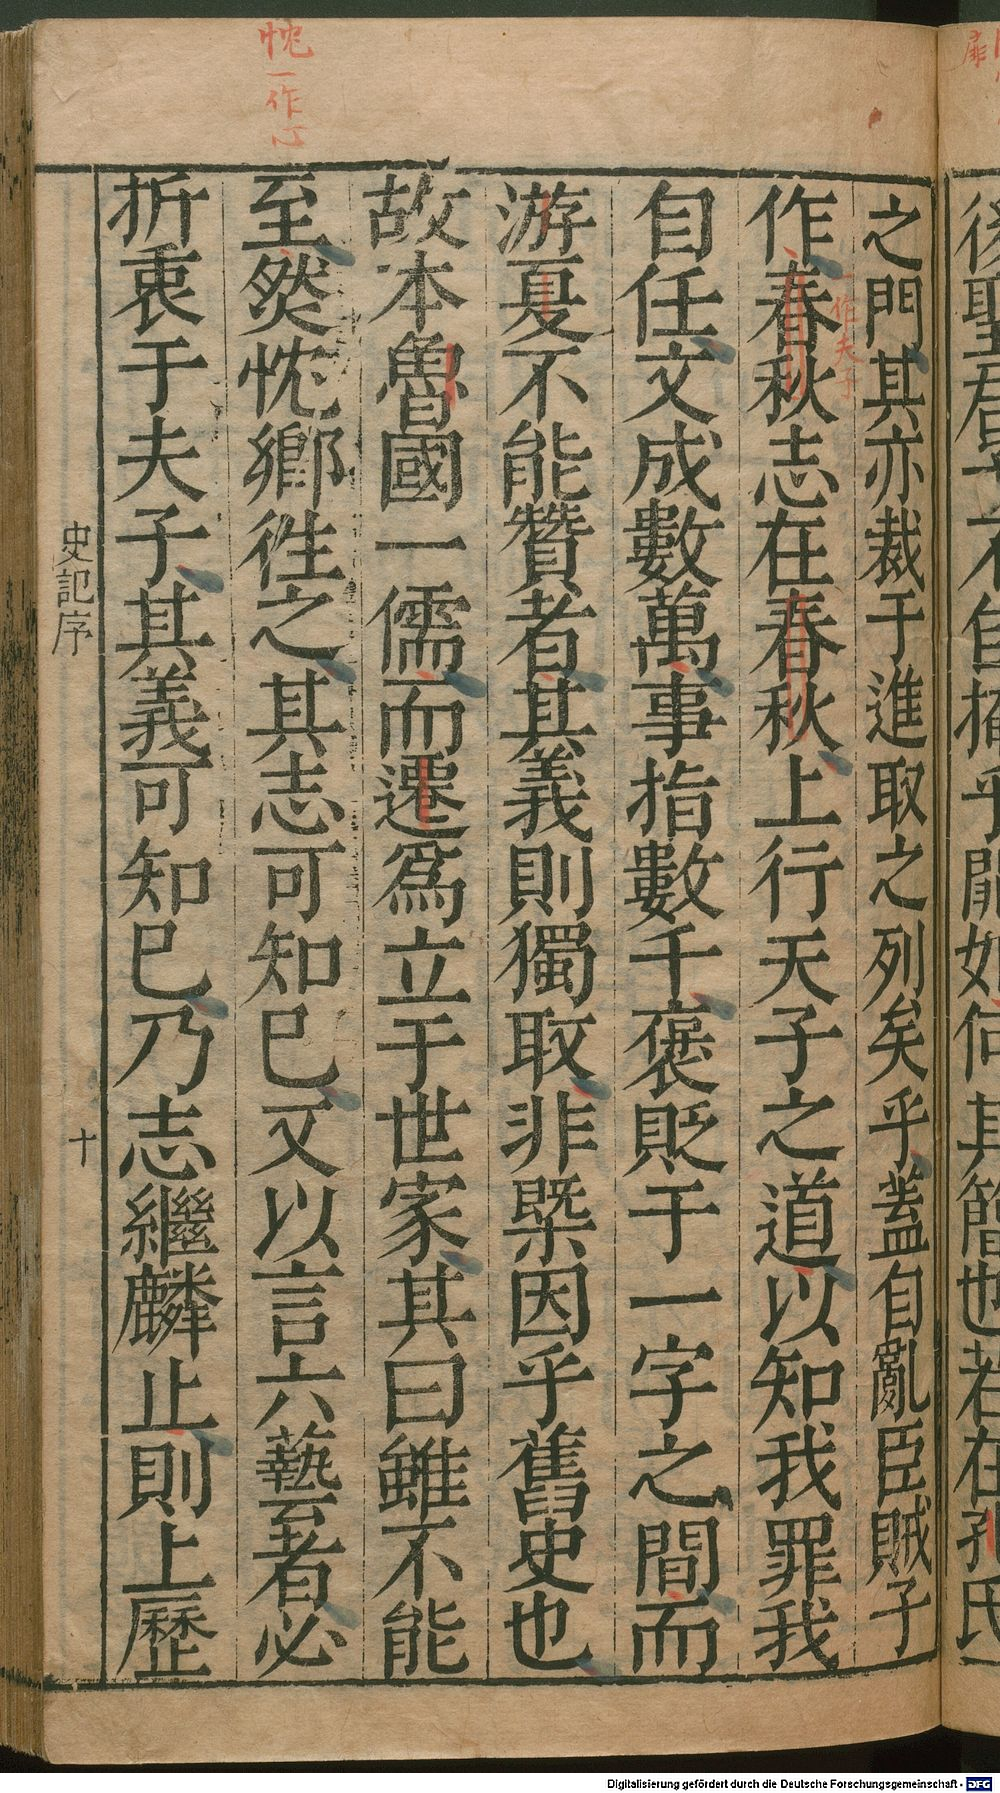 後聖君子不自揜乎閒如何其簡也若在孔氏
之門其亦裁于進取之列矣乎蓋自亂臣賊子
作春秋志在春秋上行天子之道以知我罪我
一作夫子
自任文成數萬事指數千褒貶于一字之間而
游夏不能贊者其義則獨取非槩因乎舊史也
故本魯國一儒而遷爲立于世家其曰雖不能
至然忱鄉徃之其志可知巳又以言六藝者必
忱一作心
折衷于夫子其義可知巳乃志繼麟止則上歷
史記序
十
Digitalisierung gefördert durch die Deutsche Forschungsgemeinschaft - DFG